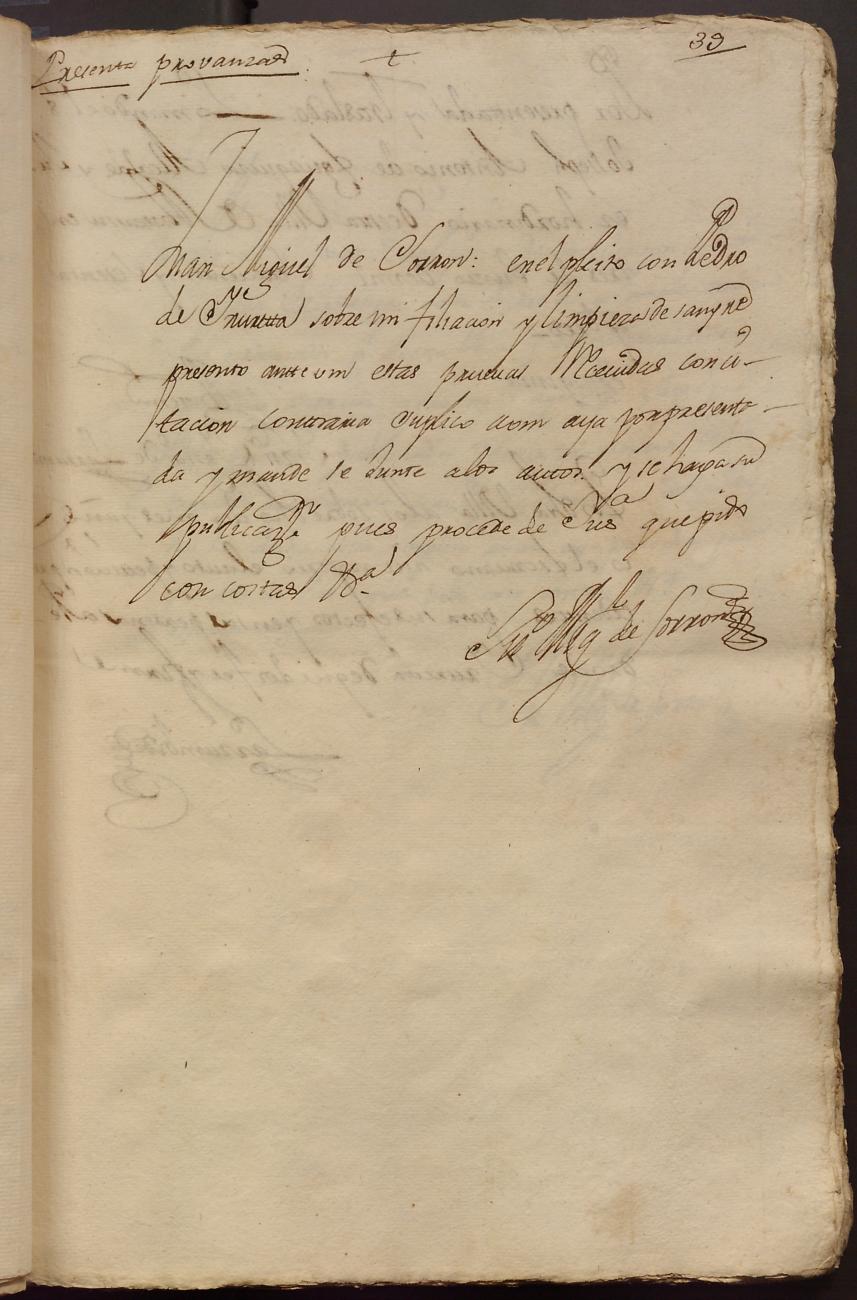 Presenta provanzas
39
Juan Miguel de Sorron: en el pleito con Pedro
de sobre mi filiacion y limpieza de sangre
presento ante vm estas pruevas Recevidas con ci-
tacion contraria suplico a vm aya por presenta-
da y mande se junte a los autos y se haga su
publicazn pues procede de Jusa que pido
con costas &a
Jn Migl de Sorron